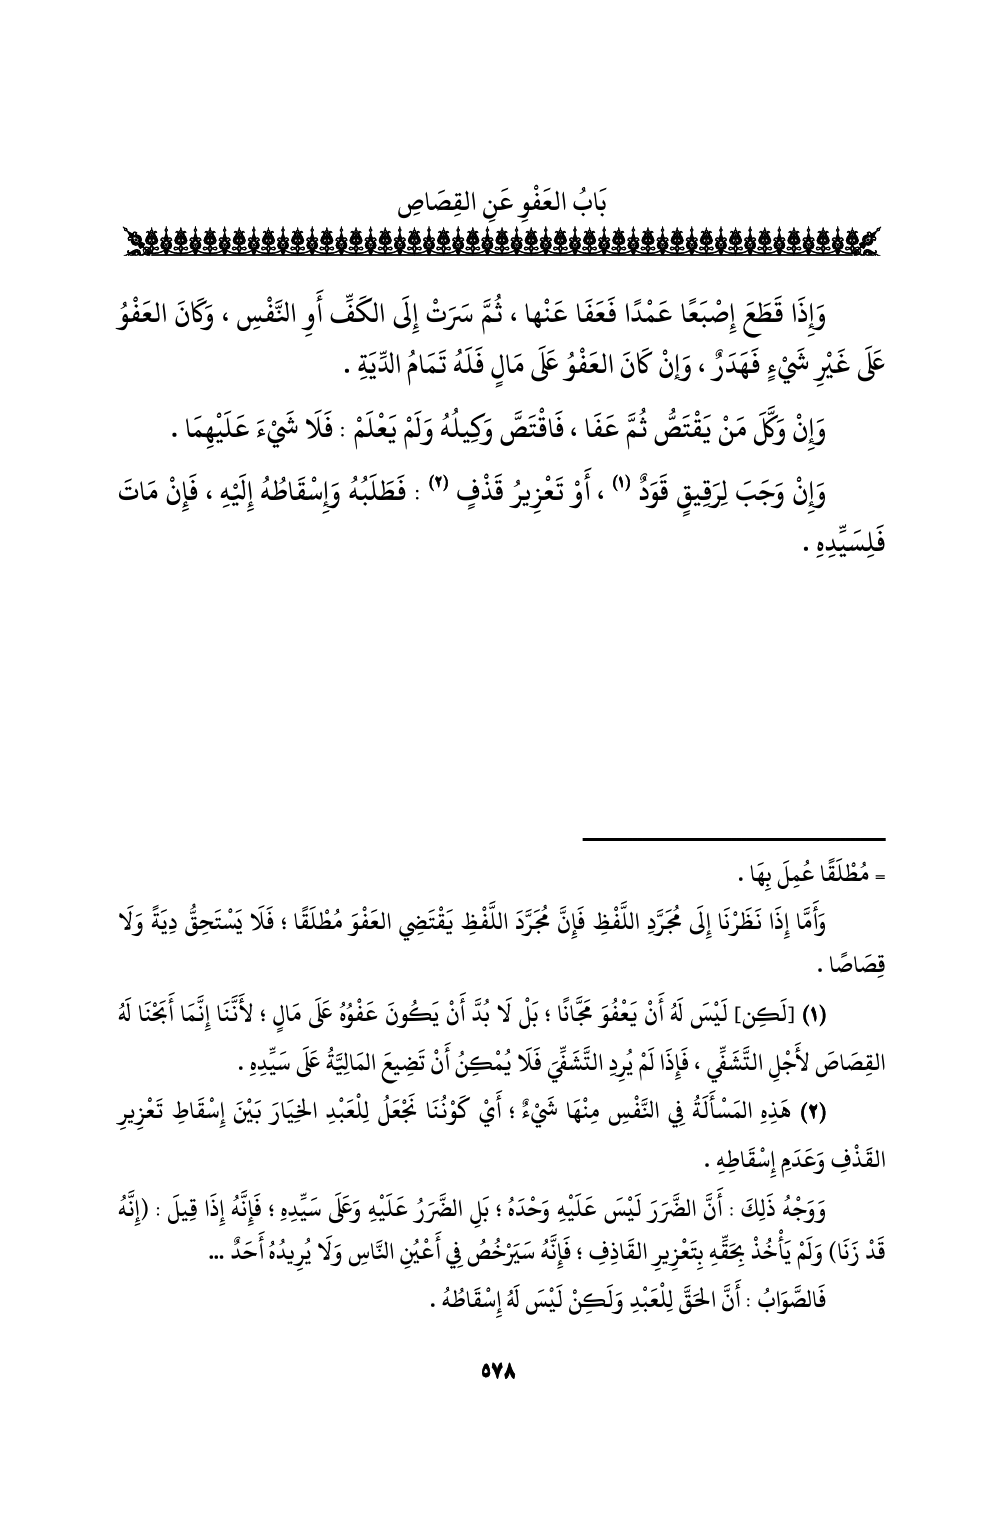 بَابُ العَفْوِ عَنِ القِصَاصِ
وَإِذَا قَطَعَ إِصْبَعًا عَمْدًا فَعَفَا عَنْها ، ثُمَّ سَرَتْ إِلَى الكَفِّ أَوِ النَّفْسِ ، وَكَانَ العَفْوُ
عَلَى غَيْرِ شَيْءٍ فَهَدَرٌ ، وَإِنْ كَانَ العَفْوُ عَلَى مَالٍ فَلَهُ تَمَامُ الدِّيَةِ .
وَإِنْ وَكَّلَ مَنْ يَقْتَصُّ ثُمَّ عَفَا ، فَاقْتَصَّ وَكِيلُهُ وَلَمْ يَعْلَمْ : فَلَا شَيْءَ عَلَيْهِمَا .
وَإِنْ وَجَبَ لِرَقِيقٍ قَوَدٌ (١) ، أَوْ تَعْزِيرُ قَذْفٍ (٢) : فَطَلَبُهُ وَإِسْقَاطُهُ إِلَيْهِ ، فَإِنْ مَاتَ
فَلِسَيِّدِهِ .
= مُطْلَقًا عُمِلَ بِهَا .
وَأَمَّا إِذَا نَظَرْنَا إِلَى مُجَرَّدِ اللَّفْظِ فَإِنَّ مُجَرَّدَ اللَّفْظِ يَقْتَضِي العَفْوَ مُطْلَقًا ؛ فَلَا يَسْتَحِقُّ دِيَةً وَلَا
قِصَاصًا .
(١) [لَكِن] لَيْسَ لَهُ أَنْ يَعْفُوَ مَجَّانًا ؛ بَلْ لَا بُدَّ أَنْ يَكُونَ عَفْوُهُ عَلَى مَالٍ ؛ لأَنَّنَا إِنَّمَا أَبَحْنَا لَهُ
القِصَاصَ لأَجْلِ التَّشَفِّي ، فَإِذَا لَمْ يُرِدِ التَّشَفِّيَ فَلَا يُمْكِنُ أَنْ تَضِيعَ المَالِيَّةُ عَلَى سَيِّدِهِ .
(٢) هَذِهِ المَسْأَلَةُ فِي النَّفْسِ مِنْهَا شَيْءٌ ؛ أَيْ كَوْنُنَا نَجْعَلُ لِلْعَبْدِ الخِيَارَ بَيْنَ إِسْقَاطِ تَعْزِيرِ
القَذْفِ وَعَدَمِ إِسْقَاطِهِ .
وَوَجْهُ ذَلِكَ : أَنَّ الضَّرَرَ لَيْسَ عَلَيْهِ وَحْدَهُ ؛ بَلِ الضَّرَرُ عَلَيْهِ وَعَلَى سَيِّدِهِ ؛ فَإِنَّهُ إِذَا قِيلَ : (إِنَّهُ
قَدْ زَنَا) وَلَمْ يَأْخُذْ بِحَقِّهِ بِتَعْزِيرِ القَاذِفِ ؛ فَإِنَّهُ سَيَرْخُصُ فِي أَعْيُنِ النَّاسِ وَلَا يُرِيدُهُ أَحَدٌ ...
فَالصَّوَابُ : أَنَّ الحَقَّ لِلْعَبْدِ وَلَكِنْ لَيْسَ لَهُ إِسْقَاطُهُ .
٥٧٨